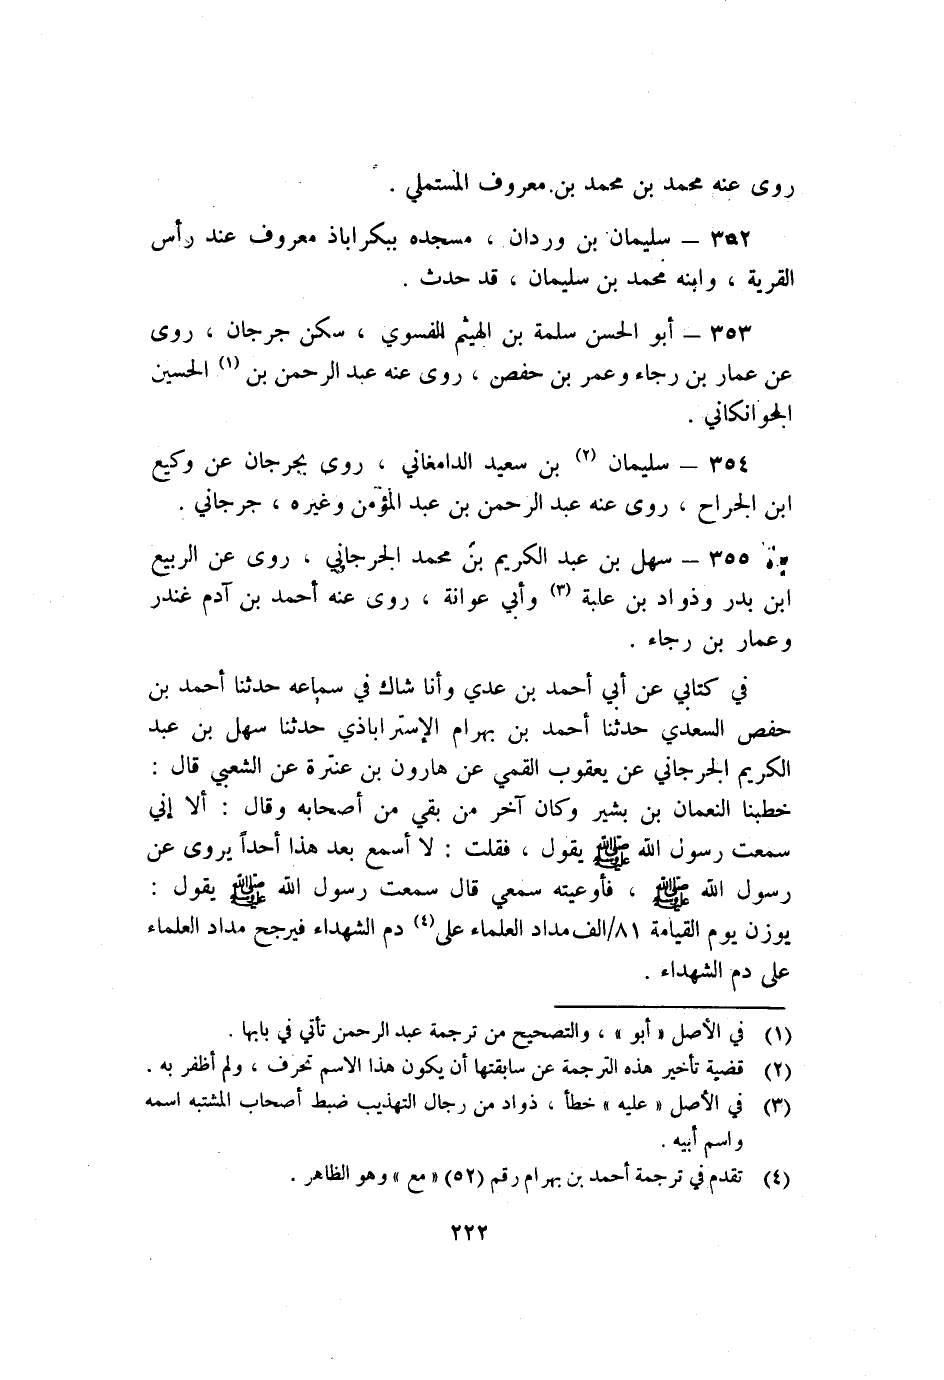 روى عنه محمد بن محمد بن معروف المستملي .
٣٥٢ — سليمان بن وردان ، مسجده ببكراباذ معروف عند رأس
القرية ، وابنه محمد بن سليمان ، قد حدث .
٣٥٣ — أبو الحسن سلمة بن الهيثم الفسوي ، سكن جرجان ، روى
عن عمار بن رجاء وعمر بن حفص ، روى عنه عبد الرحمن بن (١) الحسين
الجوانكاني .
٣٥٤ — سليمان (٢) بن سعيد الدامغاني ، روى بجرجان عن وكيع
ابن الجراح ، روى عنه عبد الرحمن بن عبد المؤمن وغيره ، جرجاني .
٣٥٥ — سهل بن عبد الكريم بن محمد الجرجاني ، روى عن الربيع
ابن بدر وذواد بن علبة (٣) وأبي عوانة ، روى عنه أحمد بن آدم غندر
وعمار بن رجاء .
في كتابي عن أبي أحمد بن عدي وأنا شاك في سماعه حدثنا أحمد بن
حفص السعدي حدثنا أحمد بن بهرام الإستراباذي حدثنا سهل بن عبد
الكريم الجرجاني عن يعقوب القمي عن هارون بن عنترة عن الشعبي قال :
خطبنا النعمان بن بشير وكان آخر من بقي من أصحابه وقال : ألا إني
سمعت رسول الله ﷺ يقول ، فقلت : لا أسمع بعد هذا أحداً يروى عن
رسول الله ﷺ ، فأوعيته سمعي قال سمعت رسول الله ﷺ يقول :
يوزن يوم القيامة ٨١/الف مداد العلماء على(٤) دم الشهداء فيرجح مداد العلماء
على دم الشهداء .
(١) في الأصل « أبو » ، والتصحيح من ترجمة عبد الرحمن تأتي في بابها .
(٢) قضية تأخير هذه الترجمة عن سابقتها أن يكون هذا الاسم تحرف ، ولم أظفر به .
(٣) في الأصل « عليه » خطأ ، ذواد من رجال التهذيب ضبط أصحاب المشتبه اسمه
واسم أبيه .
(٤) تقدم في ترجمة أحمد بن بهرام رقم (٥٢) « مع » وهو الظاهر .
٢٢٢